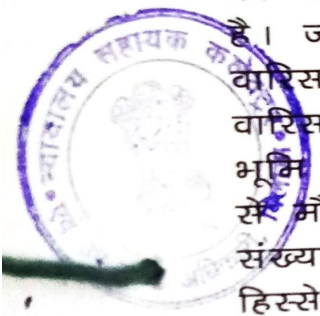 है। ज
वारिस
वारिस
भूमि
से मौ
संख्य
हिस्से
न्यायालय सहायक